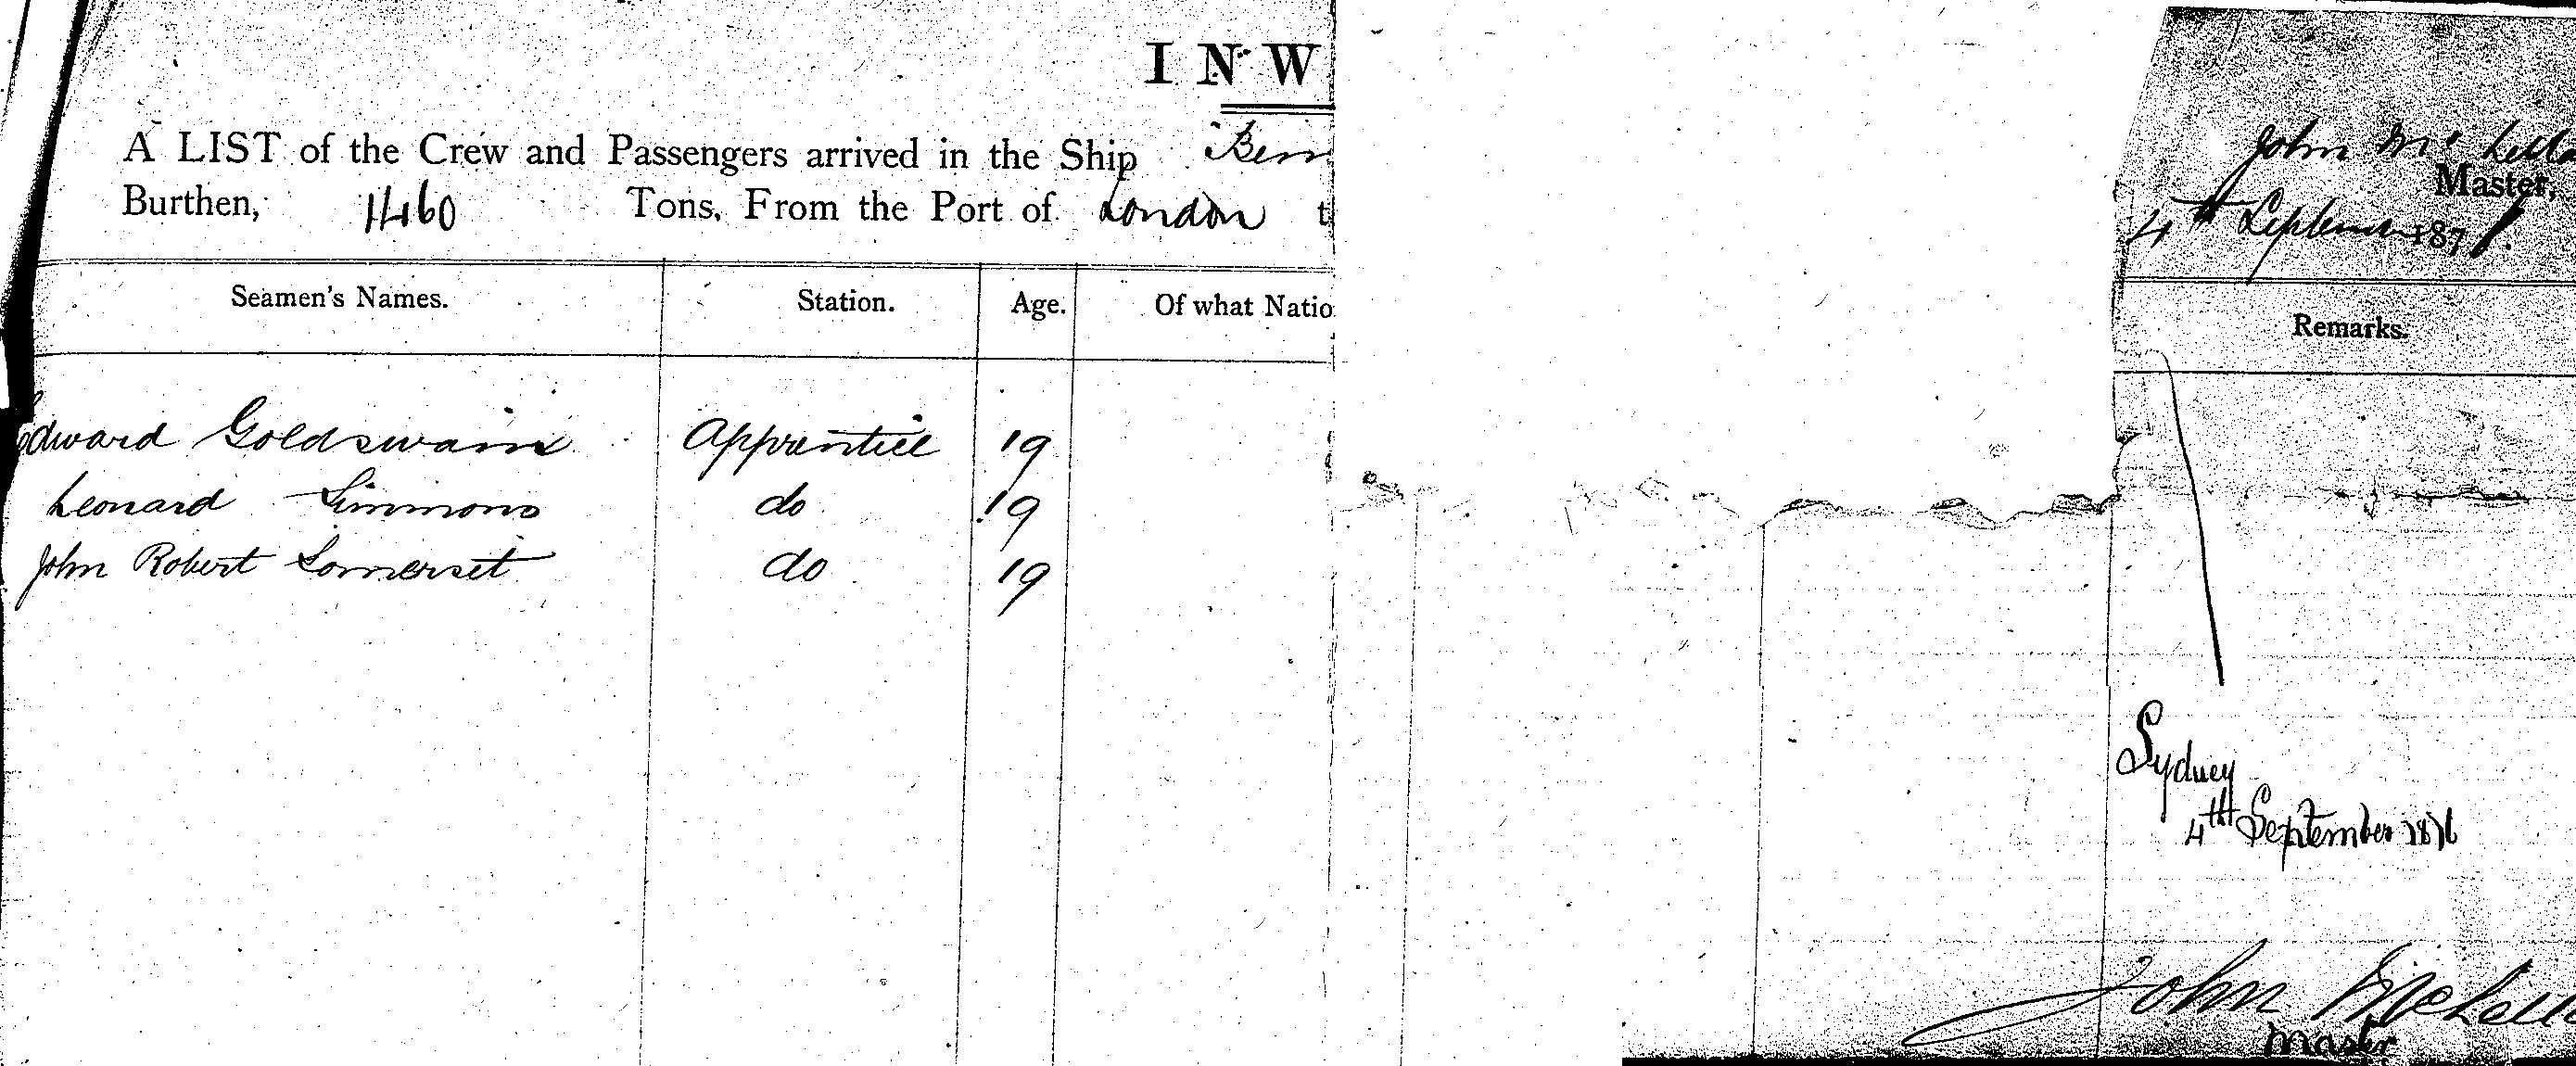 INW
A LIST of the Crew and Passengers arrived in the Ship
Burthen, 1460 Tons, From the Port of London
John Mc
Master,
4th September 187
Seamen's Names. Station. Age. Of what Natio
Remarks.
Edward Goldswain Apprentice 19
Leonard Simmons do 19
John Robert Somerset do 19
Sydney
4th September 1876
John McLell
Master